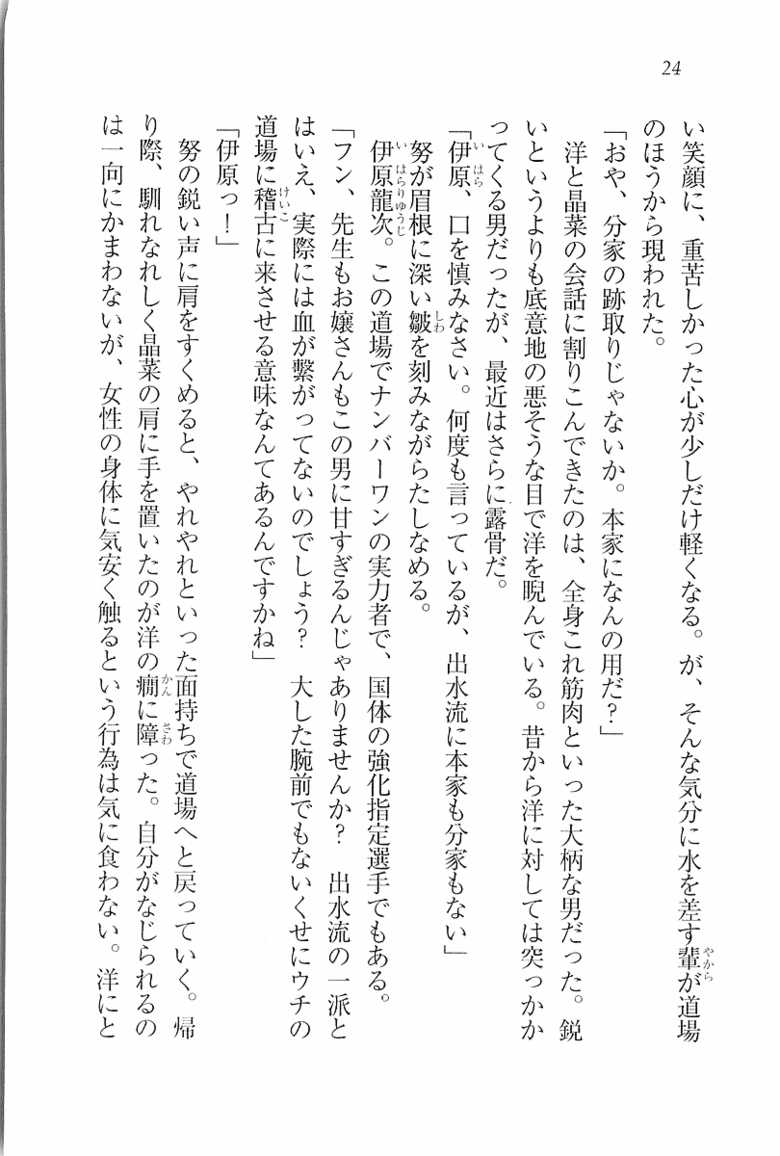 24
い笑顔に、重苦しかった心が少しだけ軽くなる。が、そんな気分に水を差す輩が道場
のほうから現われた。
「おや、分家の跡取りじゃないか。本家になんの用だ?」
洋と晶菜の会話に割りこんできたのは、全身これ筋肉といった大柄な男だった。鋭
いというよりも底意地の悪そうな目で洋を睨んでいる。昔から洋に対しては突っかか
ってくる男だったが、最近はさらに露骨だ。
「伊原、口を慎みなさい。何度も言っているが、出水流に本家も分家もない」
努が眉根に深い皺を刻みながらたしなめる。
伊原龍次。この道場でナンバーワンの実力者で、国体の強化指定選手でもある。
「フン、先生もお嬢さんもこの男に甘すぎるんじゃありませんか? 出水流の一派と
はいえ、実際には血が繋がってないのでしょう? 大した腕前でもないくせにウチの
道場に稽古に来させる意味なんてあるんですかね」
「伊原っ!」
努の鋭い声に肩をすくめると、やれやれといった面持ちで道場へと戻っていく。帰
り際、馴れなれしく晶菜の肩に手を置いたのが洋の癇に障った。自分がなじられるの
は一向にかまわないが、女性の身体に気安く触るという行為は気に食わない。洋にと